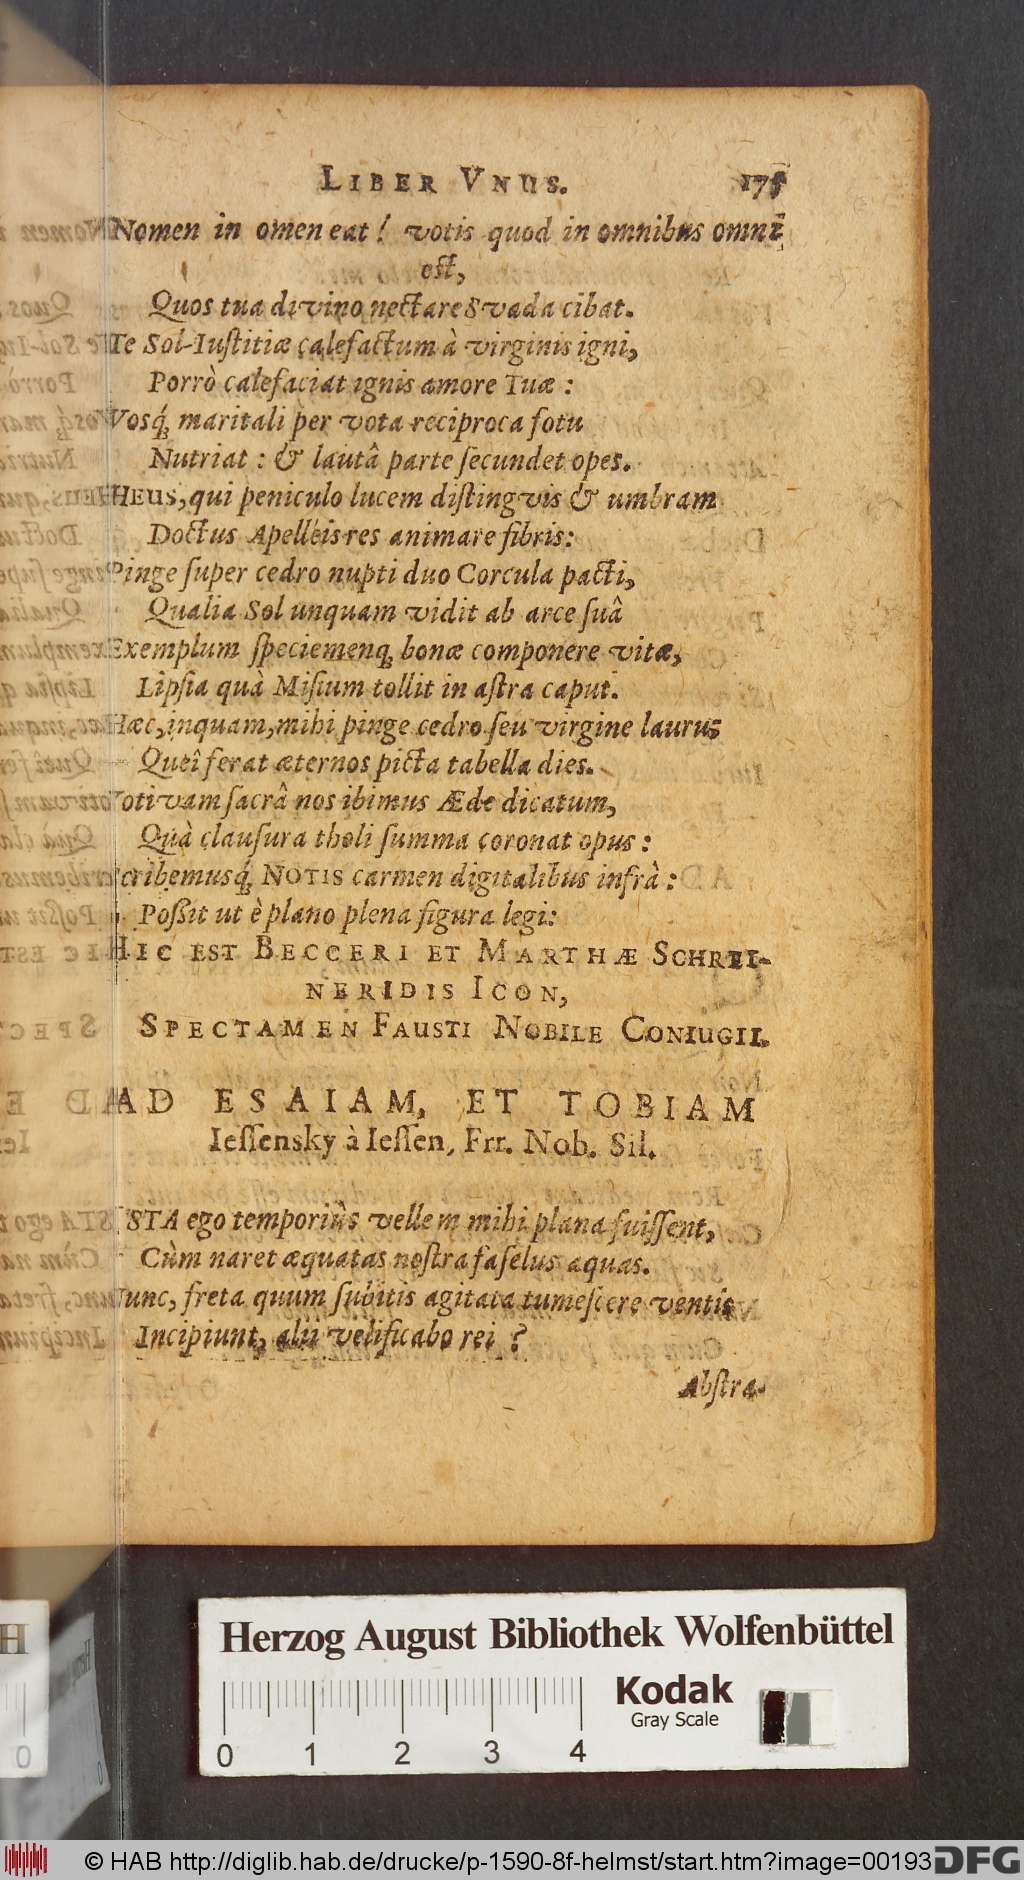 LIBER VNUS. 175
Nomen in omen eat! votis quod in omnibus omnē
est,
Quos tua divino nectare Svada cibat.
Te Sol-Iustitiæ calefactum à virginis igni,
Porrò calefaciat ignis amore Tuæ:
Vosq́; maritali per vota reciproca fotu
Nutriat: & lautâ parte secundet opes.
HEUS, qui peniculo lucem distingvis & umbram
Doctus Apelleis res animare fibris:
Pinge super cedro nupti duo Corcula pacti,
Qualia Sol unquam vidit ab arce suâ
Exemplum speciemenq; bonæ componere vitæ,
Lipsia quà Misium tollit in astra caput.
Hæc, inquam, mihi pinge cedro seu virgine lauru;
Queî ferat æternos picta tabella dies.
Votivam sacrâ nos ibimus Æde dicatum,
Quà clausura tholi summa coronat opus:
Scribemusq́; NOTIS carmen digitalibus infrà:
Possit ut è plano plena figura legi:
HIC EST BECCERI ET MARTHÆ SCHREI-
NERIDIS ICON,
SPECTAMEN FAUSTI NOBILE CONIUGII.
AD ESAIAM, ET TOBIAM
Iessensky à Iessen, Frr. Nob. Sil.
ISTA ego temporiùs vellem mihi plana fuissent,
Cùm naret æquatas nostra faselus aquas.
Nunc, freta quum subitis agitata tumescere ventis
Incipiunt, alii velificabo rei?
Abstra-
Herzog August Bibliothek Wolfenbüttel
Kodak
Gray Scale
0 1 2 3 4
© HAB http://diglib.hab.de/drucke/p-1590-8f-helmst/start.htm?image=00193
DFG